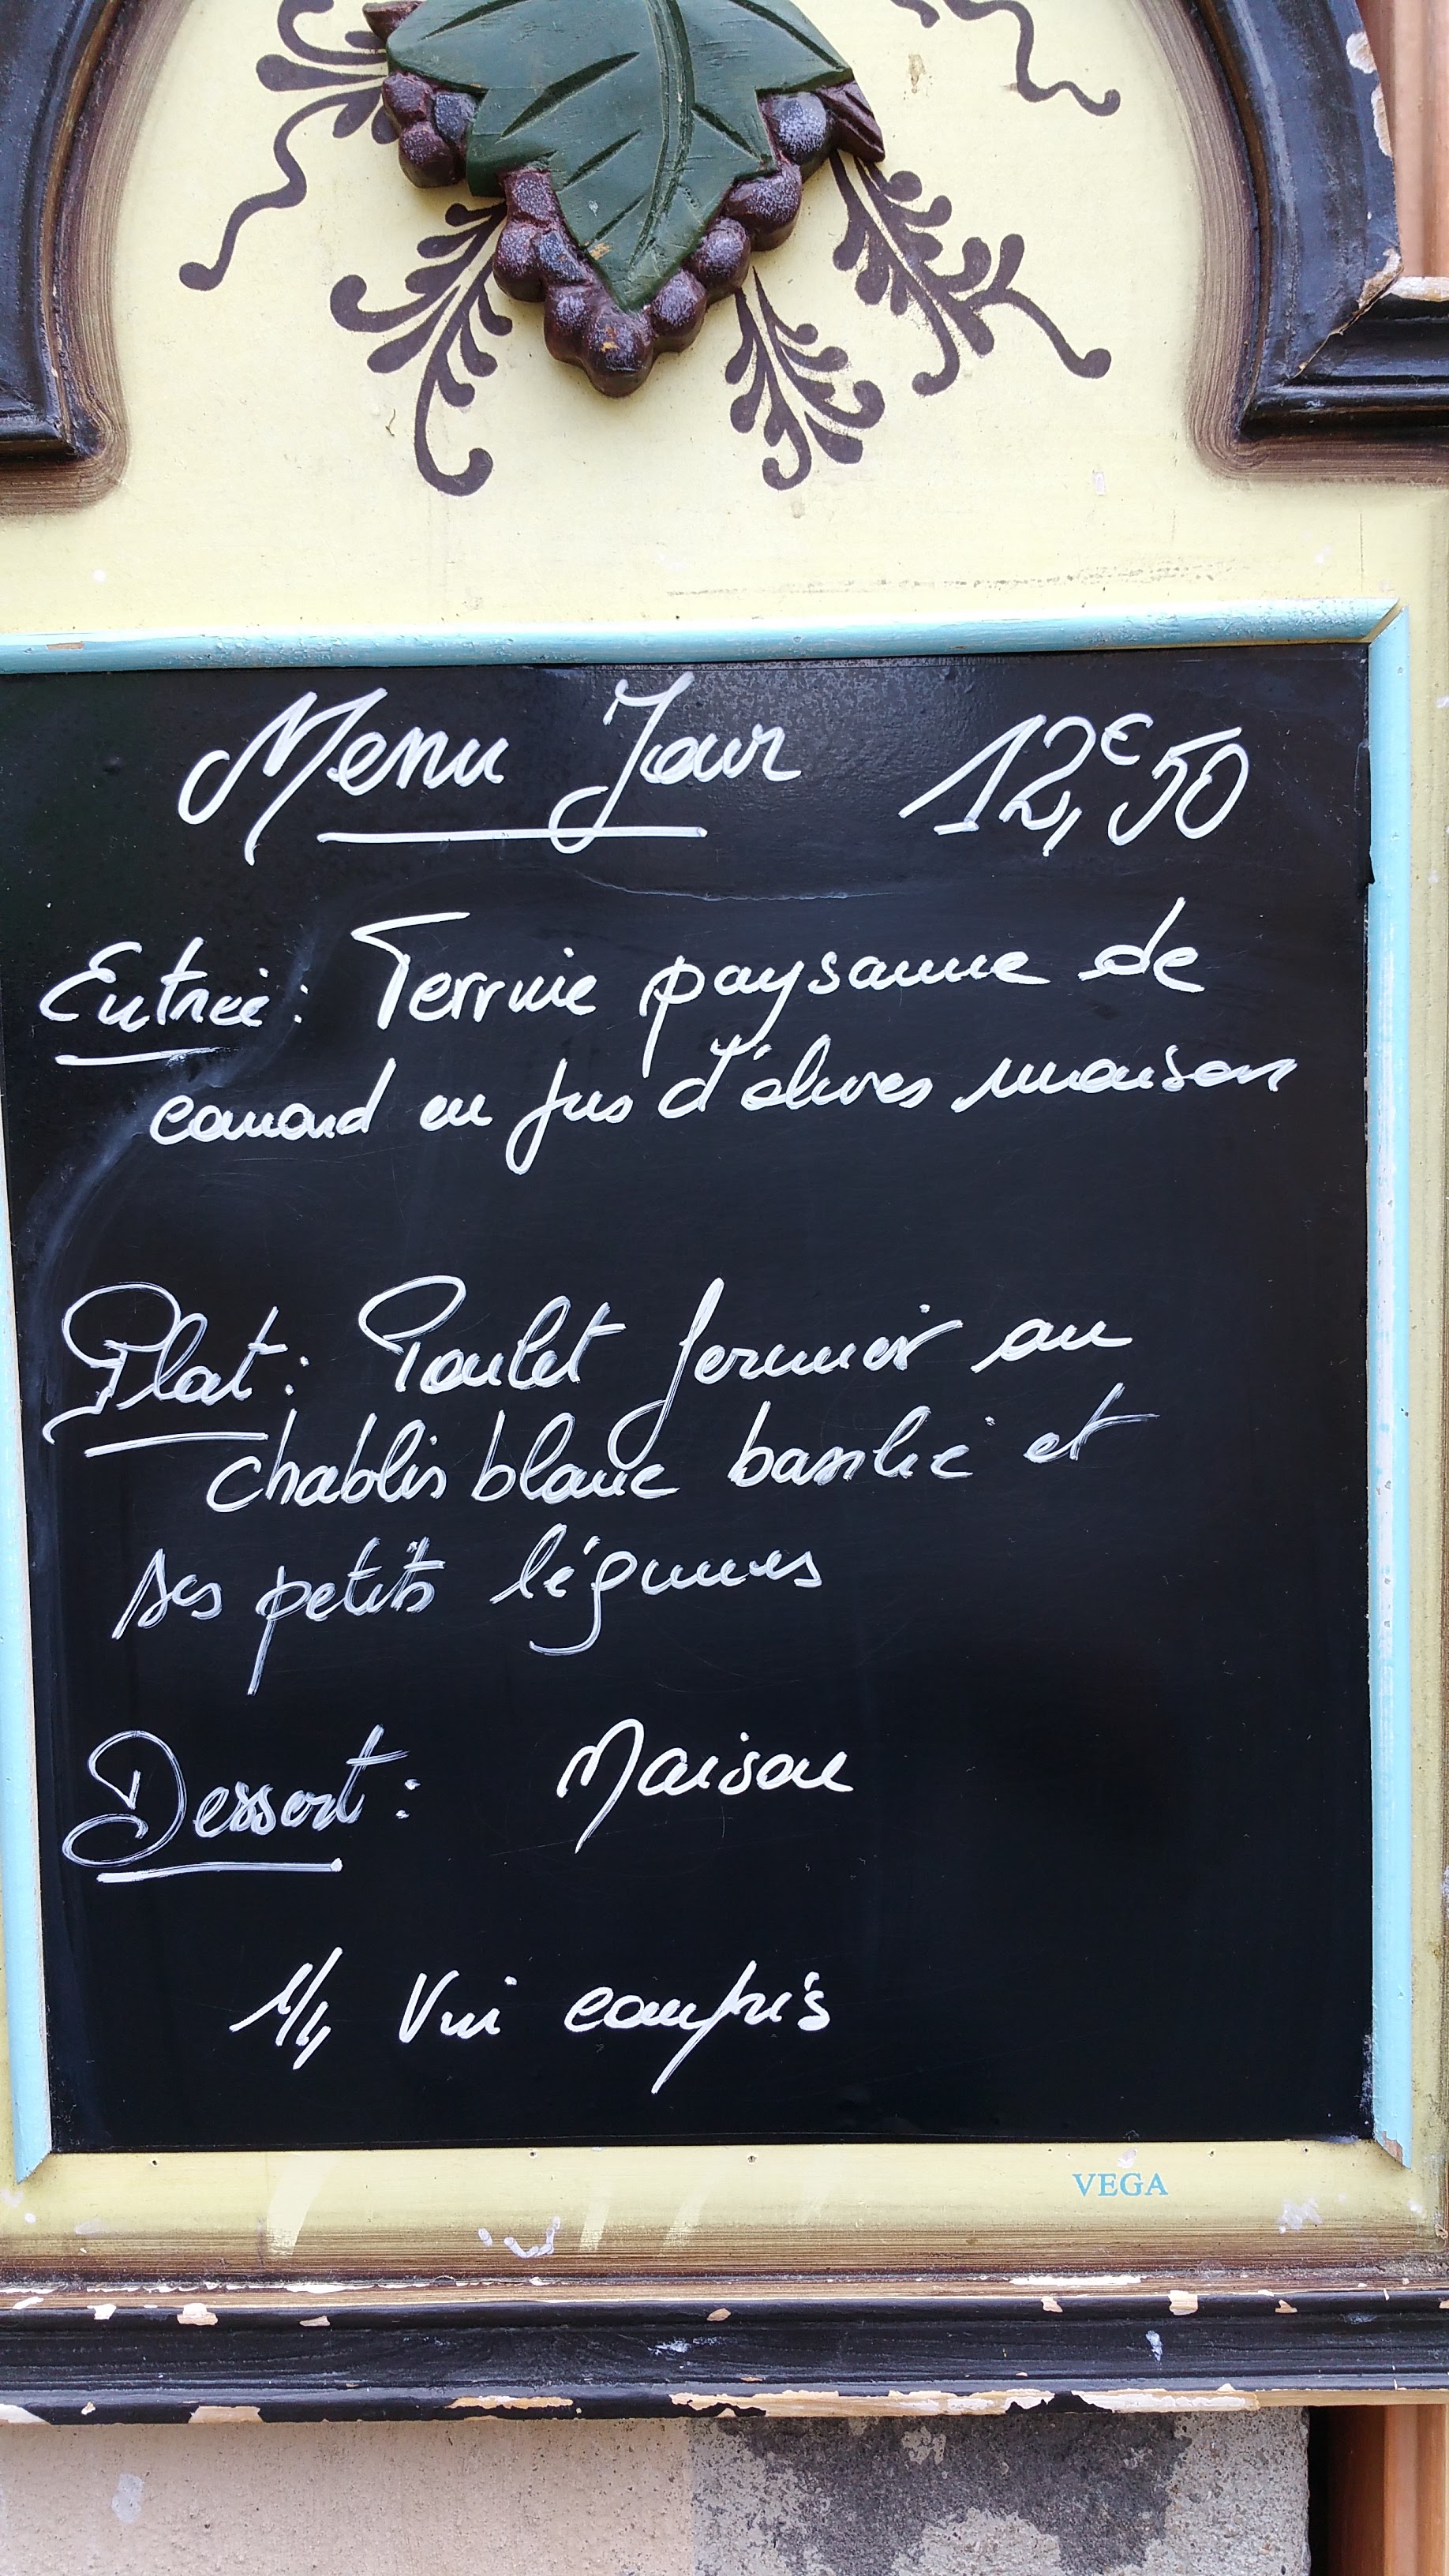 Menu Jour 12,€50
Entrée: Terrine paysanne de
canard en jus d'olives maison
Plat: Poulet fermier au
chablis blanc basilic et
ses petits légumes
Dessert: Maison
1/4 Vin compris
VEGA